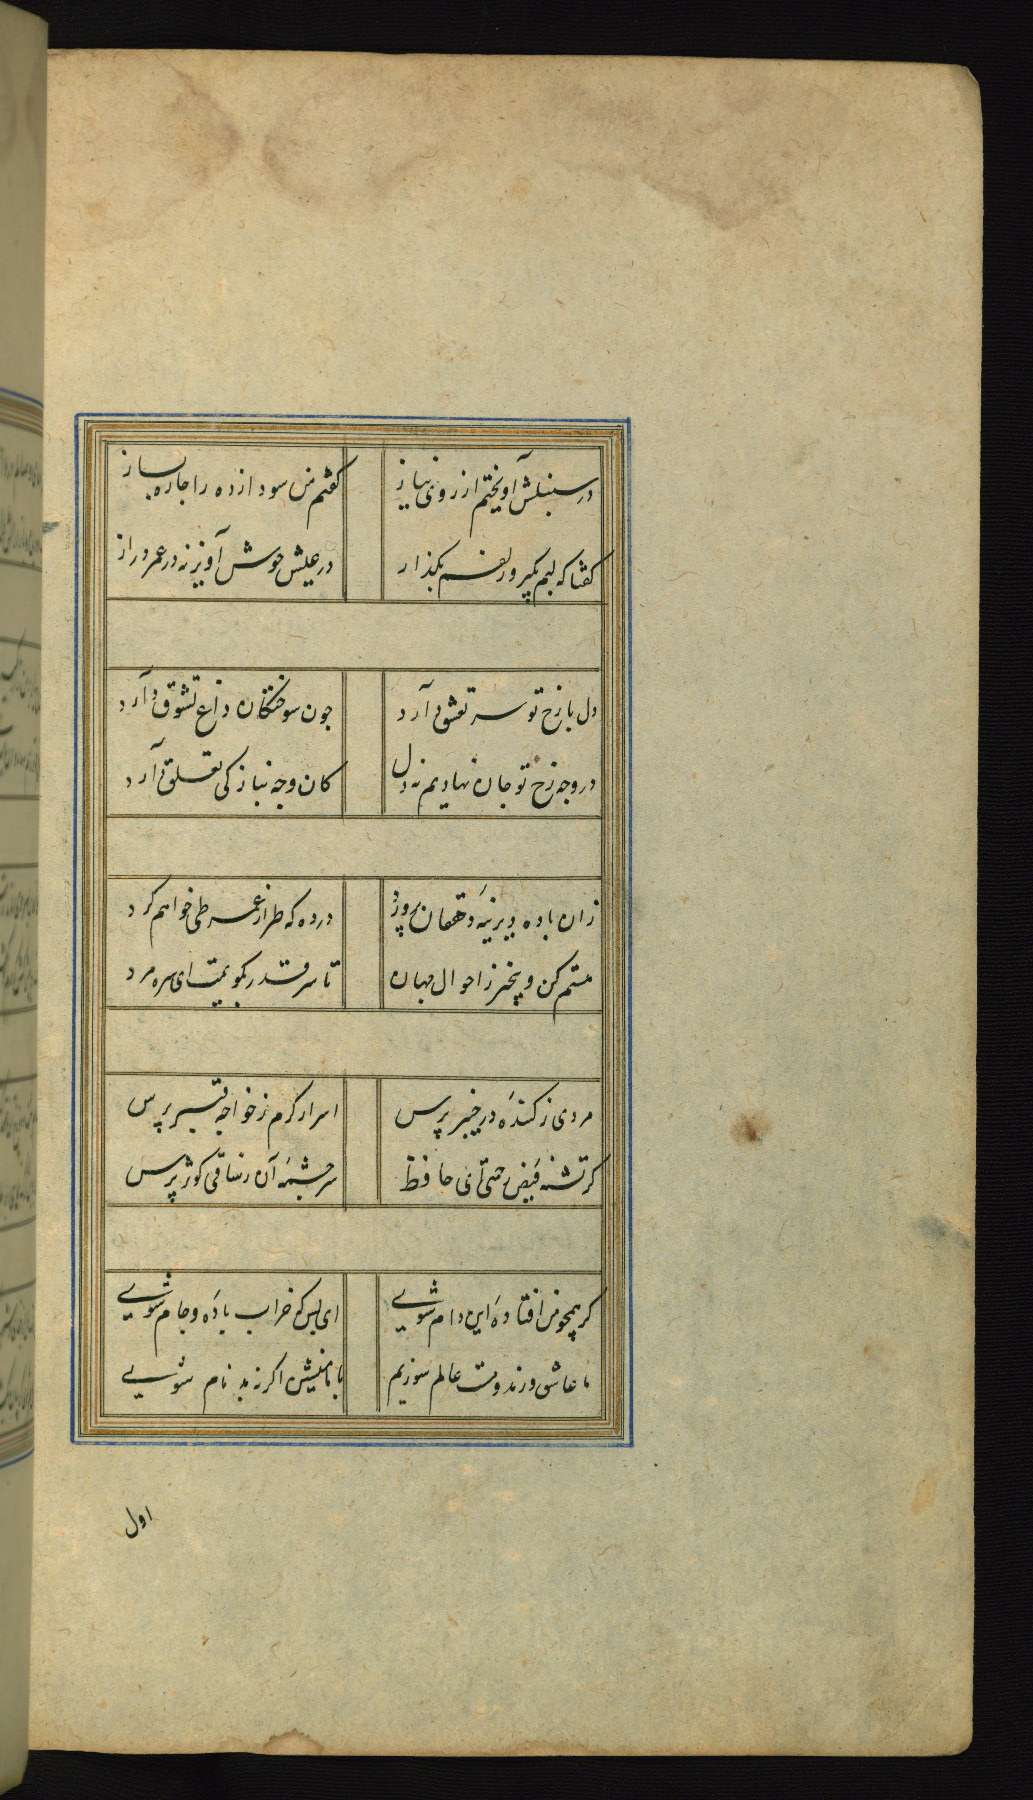 در سنبلش آویختم از روی نیاز
کفتم من سودازده را چاره بساز
کفتا که لبم بکیر و زلفم بکذار
در عیش خوش آویز نه در عمر دراز
دل با رخ تو سر تعشق دارد
چون سوختکان داغ تشوق دارد
در وجه رخ تو جان نهادیم نه دل
کان وجه نیاز کی تعلق دارد
زان باده دیرینهٔ دهقان پرورد
در ده که طراز عمر طی خواهم کرد
مستم کن و بیخبر ز احوال جهان
تا سر قدر بکویمت ای سره مرد
مردی ز کنندهٔ در خیبر پرس
اسرار کرم ز خواجه قنبر پرس
کر تشنه فیض رحمتی ای حافظ
سرچشمهٔ آن ز ساقی کوثر پرس
کر همچو من افتادهٔ این دام شوی
ای بس که خراب باده و جام شوی
ما عاشق و رند و مست عالم سوزیم
با ما منشین اکر نه بد نام شوی
اول